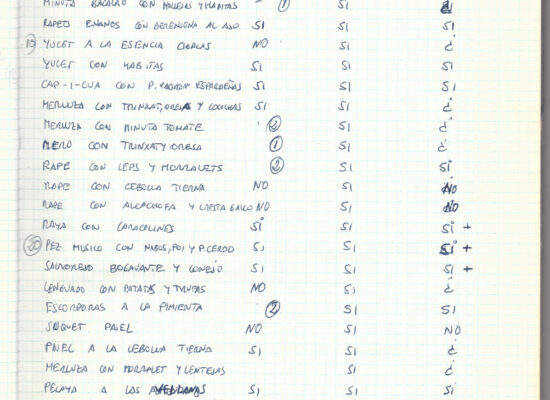 MINUTA BACALAO CON (1) SI
RAPETS ENANOS CON BERENJENA AL AJO SI SI SI
15 YUCET A LA ESENCIA NO SI ¿
YUCET CON HABITAS SI SI SI
CAP-I-CUA CON P. ESPARDEÑAS SI SI SI
MERLUZA CON TRINXAT, OREJA Y COCOCHAS SI SI ¿
MERLUZA CON MINUTA TOMATE 2 SI ¿
MERO CON TRINXAT Y OREJA 1 SI ¿
RAPE CON CEPS Y MORRALETS 2 SI SI
RAPE CON CEBOLLA TIERNA NO SI NO
RAPE CON ALCACHOFA Y CRESTA GALLO NO SI NO
RAYA CON CARACOLINES SI SI SI +
20 PEZ MUSICO CON NABOS, FOI Y P. CERDO SI SI SI +
SALMOREJO BOGAVANTE Y CONEJO SI SI SI +
LENGUADO CON PATATAS Y TRUFAS NO SI ¿
ESCORPORAS A LA PIMIENTA 2 SI SI
SUQUET PAJEL NO SI NO
PAJEL A LA CEBOLLA TIERNA SI SI ¿
MERLUZA CON MORRALET Y LENTEJAS SI ¿
PELAYA A LAS AVELLANAS SI SI SI